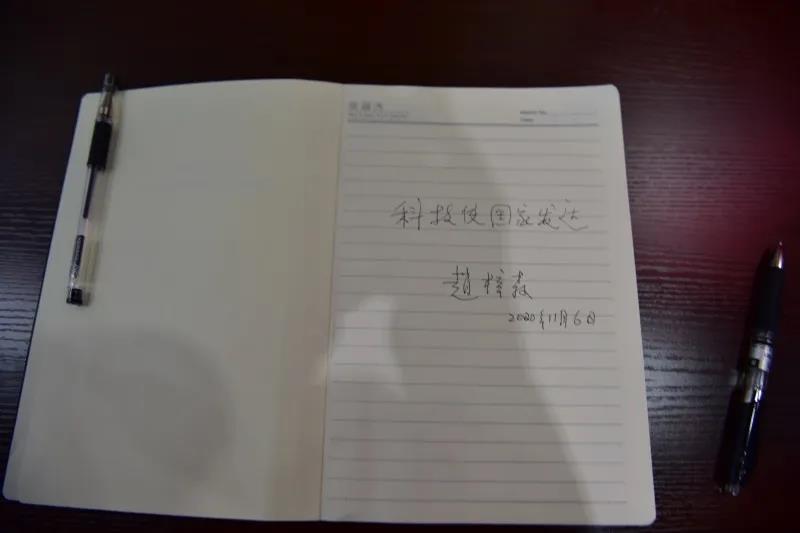 科技使国家发达
赵梓森
2020年11月6日